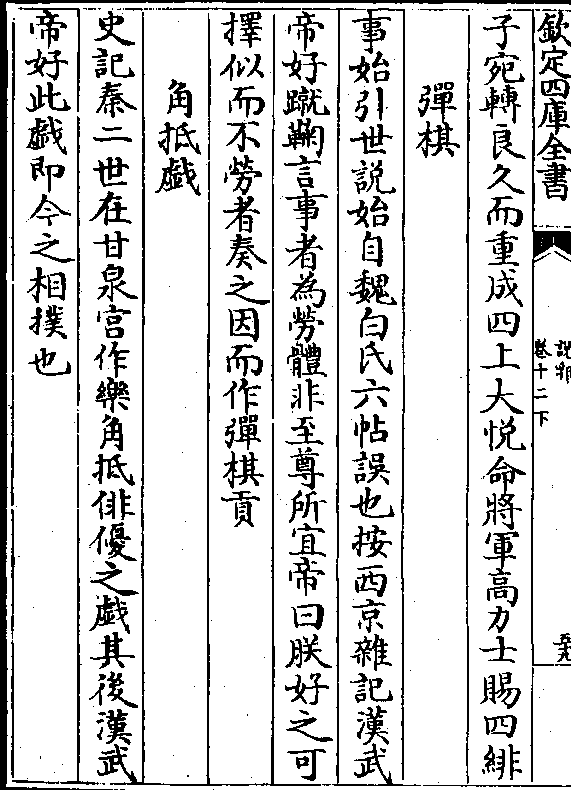 欽定四庫全書
說郛
卷十二下
子宛轉良久而重成四上大悅命將軍高力士賜四緋
彈棋
事始引世說始自魏白氏六帖誤也按西京雜記漢武
帝好蹴鞠言事者為勞體非至尊所宜帝曰朕好之可
擇似而不勞者奏之因而作彈棋貢
角抵戲
史記秦二世在甘泉宮作樂角抵俳優之戲其後漢武
帝好此戲即今之相撲也